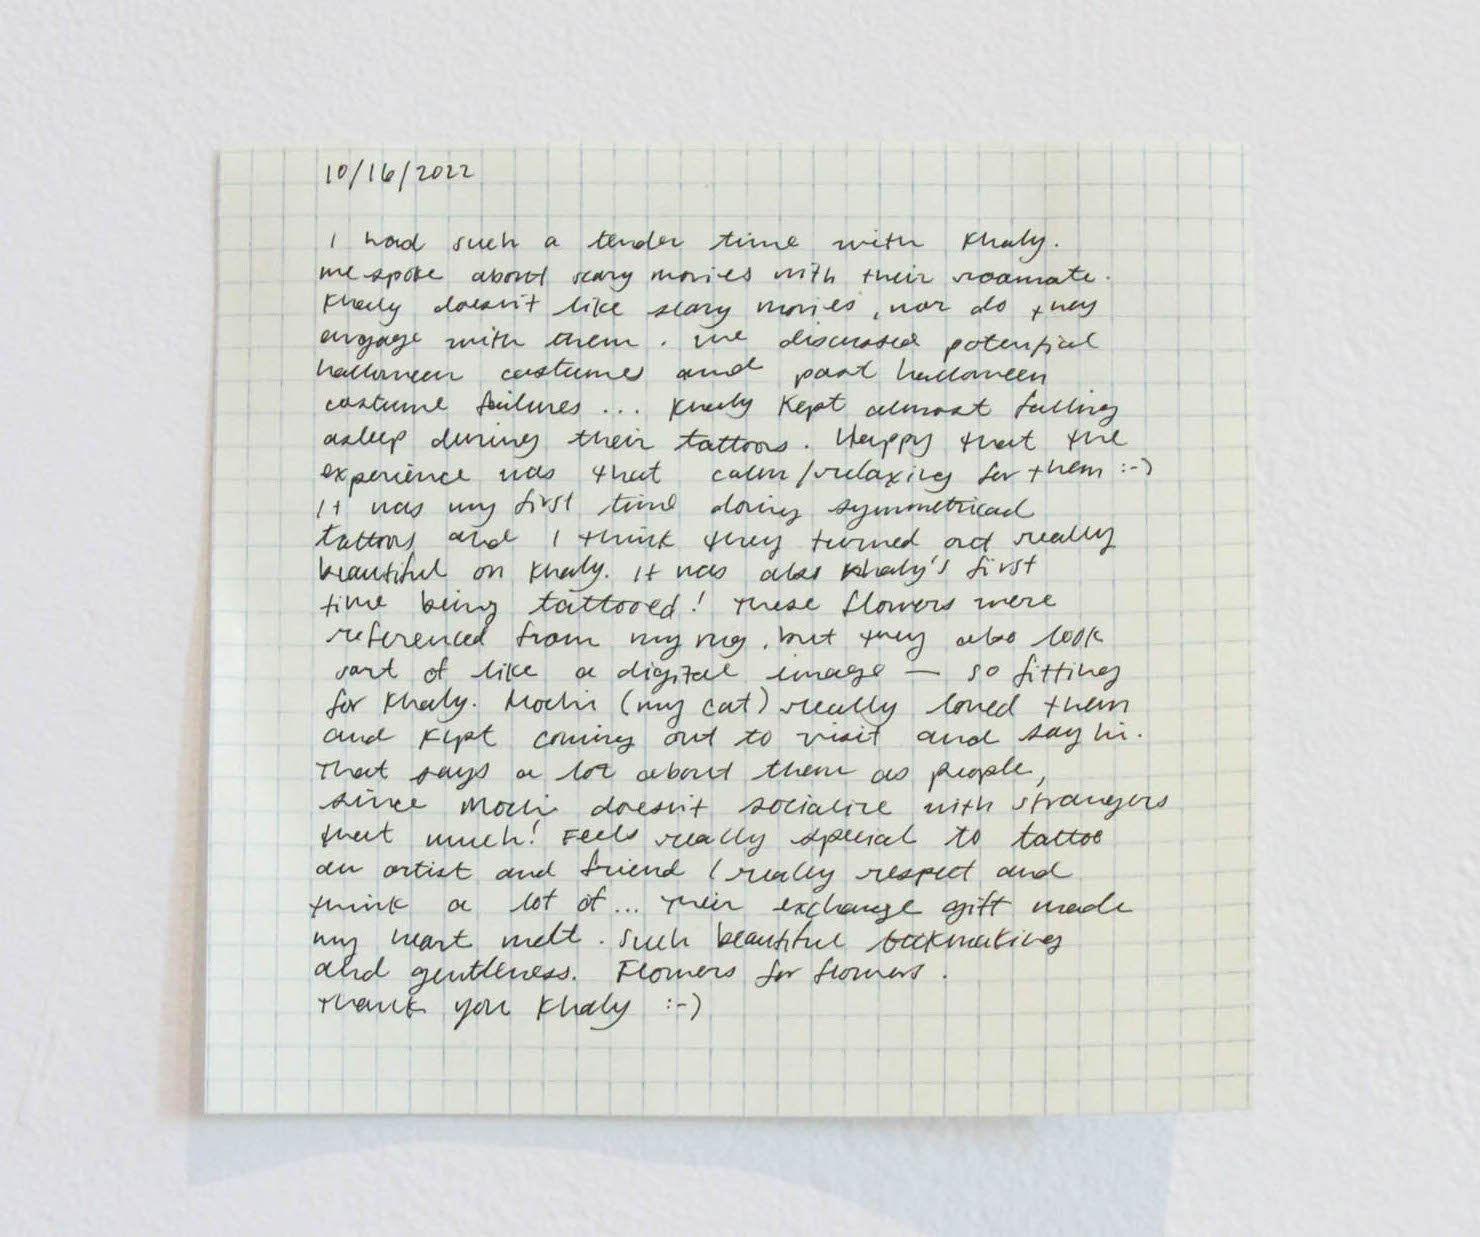 10/16/2022
I had such a tender time with Khaly.
We spoke about scary movies with their roomate.
Khaly doesn't like scary movies, nor do they
engage with them. We discussed potential
halloween costumes and past halloween
costume failures... Khaly kept almost falling
asleep during their tattoos. Happy that the
experience was that calm/relaxing for them :-)
It was my first time doing symmetrical
tattoos and I think they turned out really
beautiful on Khaly. It was also Khaly's first
time being tattooed! These flowers were
referenced from my rug, but they also look
sort of like a digital image — so fitting
for Khaly. Mochi (my cat) really loved them
and kept coming out to visit and say hi.
That says a lot about them as people,
since Mochi doesn't socialize with strangers
that much! Feels really special to tattoo
an artist and friend I really respect and
think a lot of... Their exchange gift made
my heart melt. Such beautiful bookmaking
and gentleness. Flowers for flowers.
Thank you Khaly :-)